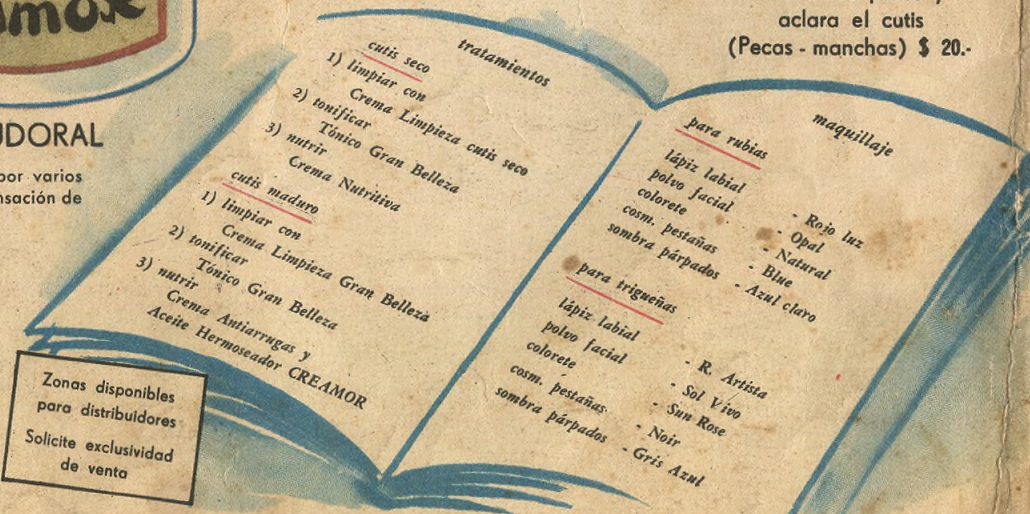 aclara el cutis
(Pecas - manchas) $ 20.-
UDORAL
por varios
nsación de
tratamientos
cutis seco
1) limpiar con
Crema Limpieza cutis seco
2) tonificar
Tónico Gran Belleza
3) nutrir
Crema Nutritiva
cutis maduro
1) limpiar con
Crema Limpieza Gran Belleza
2) tonificar
Tónico Gran Belleza
3) nutrir
Crema Antiarrugas y
Aceite Hermoseador CREAMOR
maquillaje
para rubias
lápiz labial - Rojo luz
polvo facial - Opal
colorete - Natural
cosm. pestañas - Blue
sombra párpados - Azul claro
para trigueñas
lápiz labial - R. Artista
polvo facial - Sol Vivo
colorete - Sun Rose
cosm. pestañas - Noir
sombra párpados - Gris Azul
Zonas disponibles
para distribuidores
Solicite exclusividad
de venta